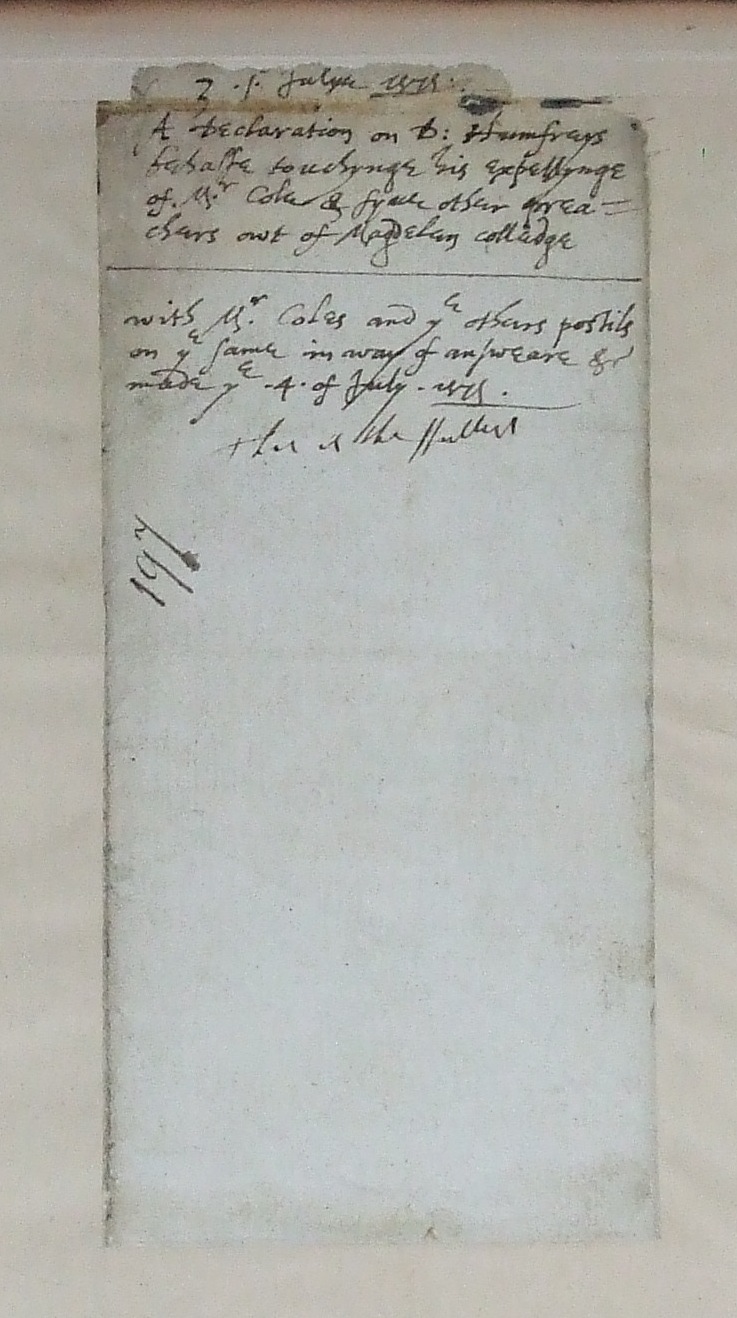 July
A Declaration on D: Humfreys
behalfe touchynge his expellynge
of Mr Cole & fyve other prea=
chers owt of Magdelen colledge
with Mr Coles and ye others postils
on ye same in way of answeare &c
made ye .4. of July.
this is the fullest
197